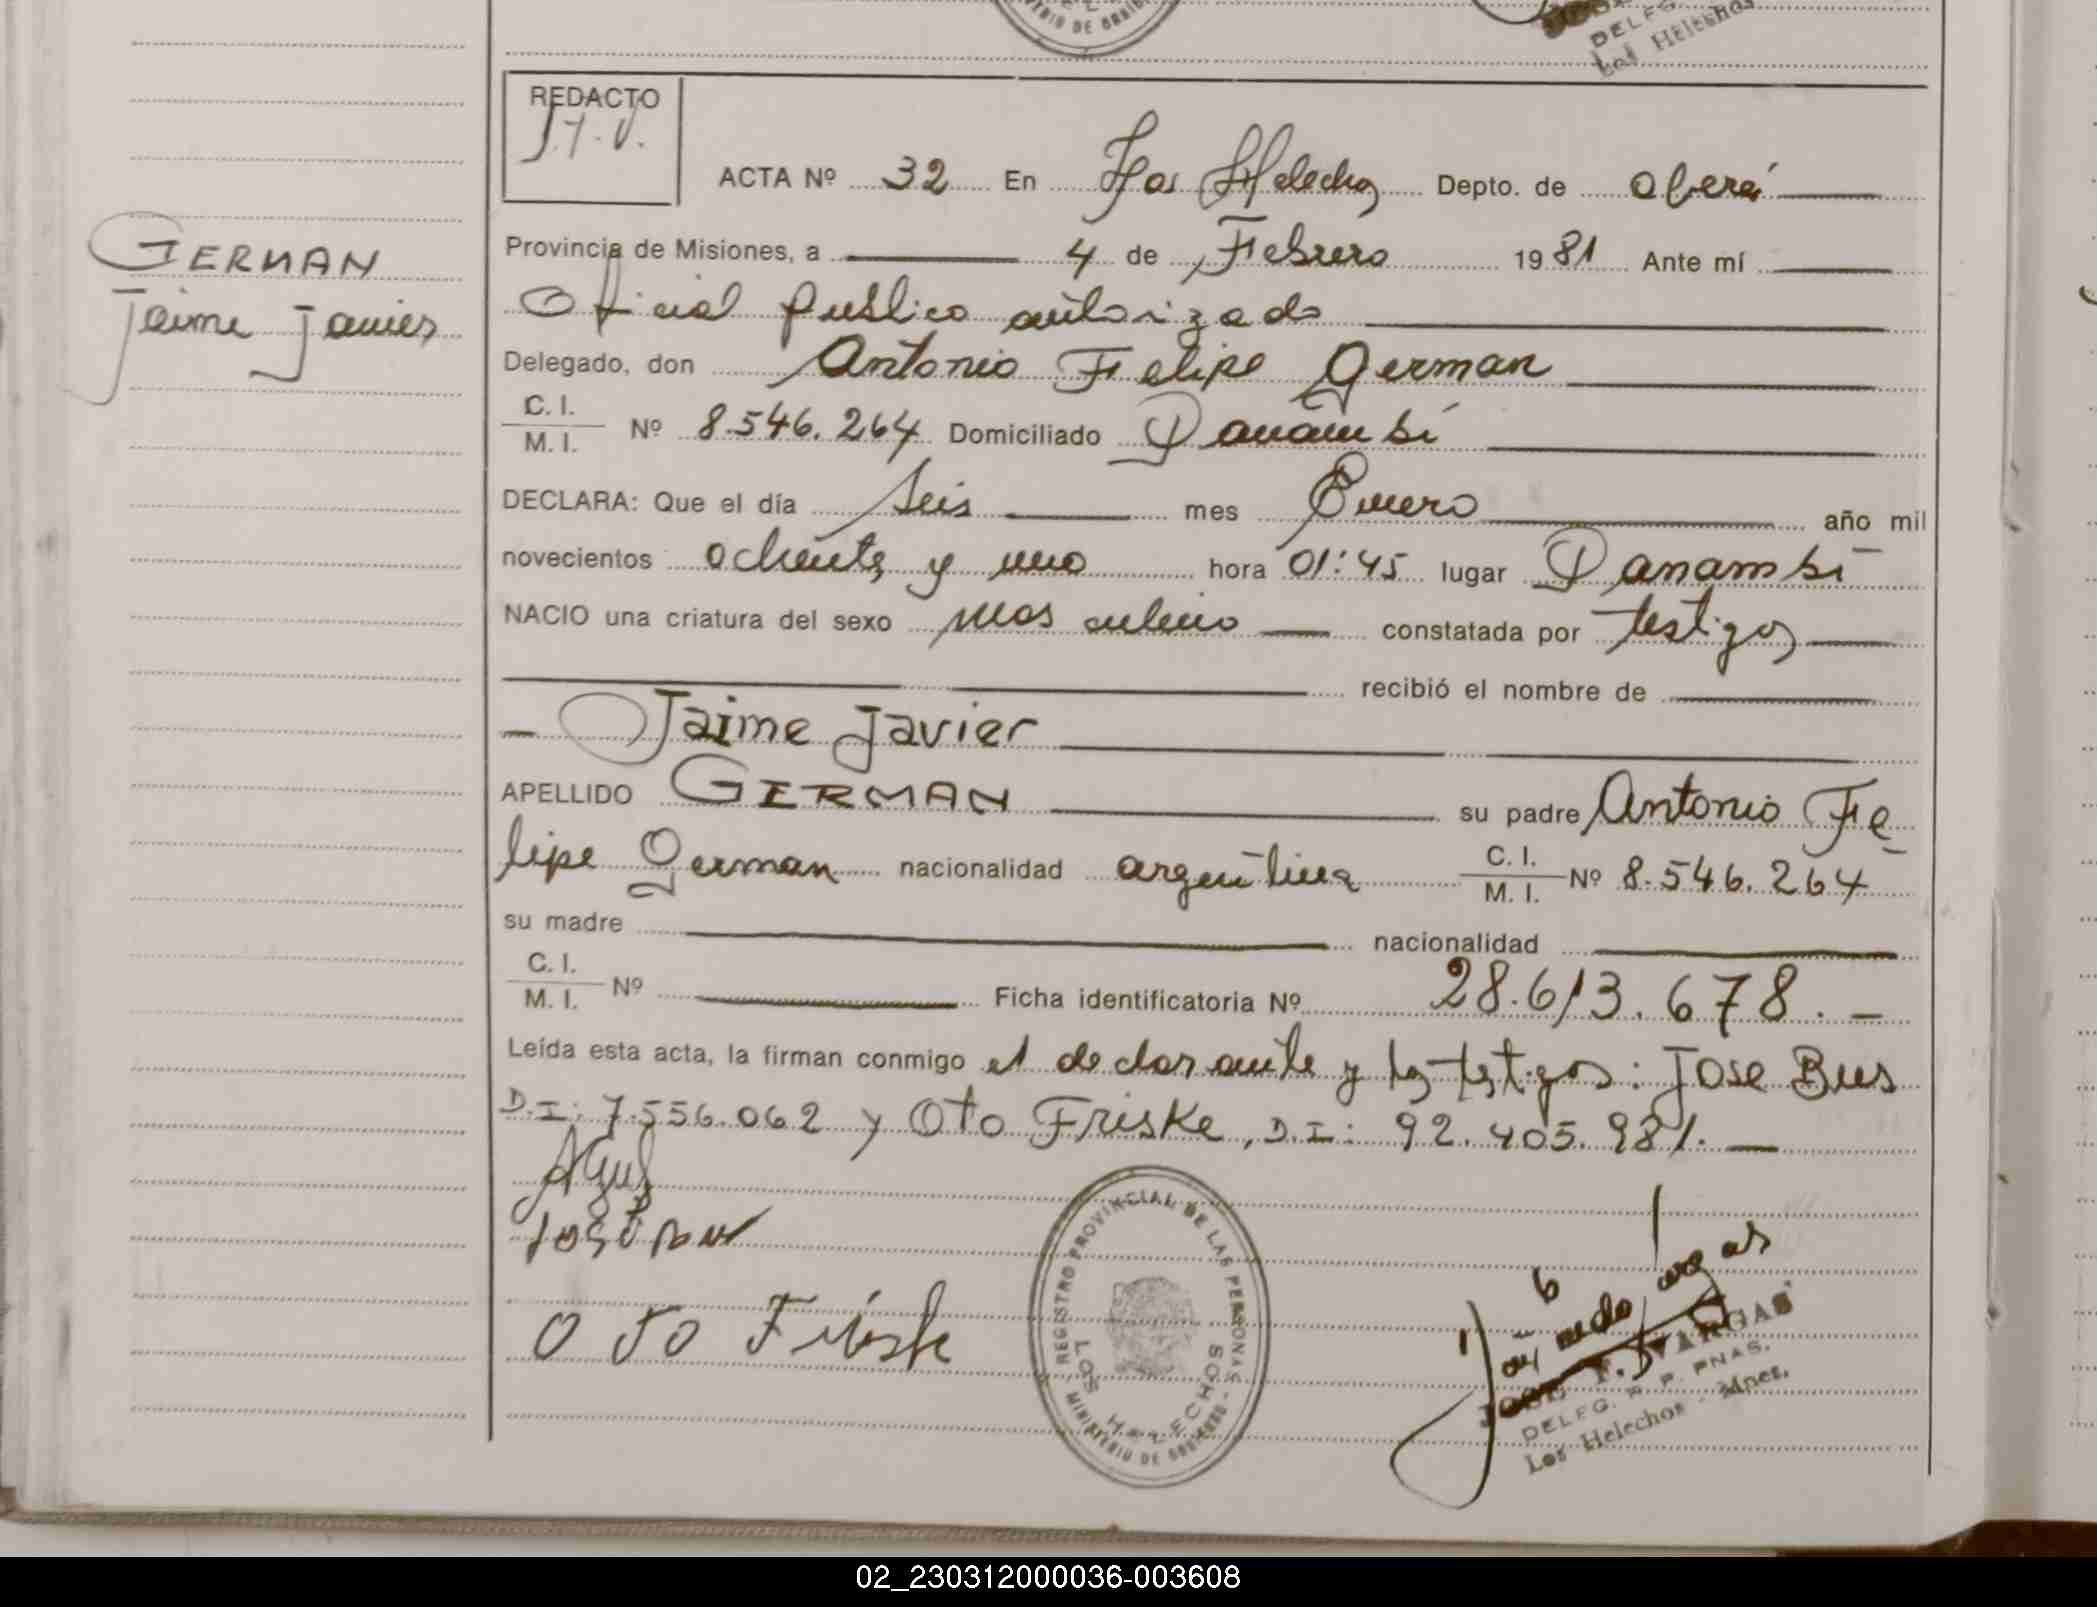 MINISTERIO DE GOBIERNO
DELEG.
Los Helechos
REDACTO
J.F.V.
ACTA Nº 32 En Los Helechos Depto. de Oberá
GERMAN
Provincia de Misiones, a 4 de Febrero 1981 Ante mí
Jaime Javier
Oficial Publico autorizado
Delegado, don Antonio Felipe German
C. I.
M. I. Nº 8.546.264 Domiciliado Panambí
DECLARA: Que el día seis mes Enero año mil
novecientos ochenta y uno hora 01:45 lugar Panambí
NACIO una criatura del sexo masculino constatada por testigos
recibió el nombre de
Jaime Javier
APELLIDO GERMAN su padre Antonio Fe-
lipe German nacionalidad argentina C. I.
M. I. Nº 8.546.264
su madre nacionalidad
C. I.
M. I. Nº Ficha identificatoria Nº 28.613.678.-
Leída esta acta, la firman conmigo el declarante y los testigos: Jose Bus
D.I: 7.556.062 y Oto Friske, D.I: 92.405.981.
Oto Friske
REGISTRO PROVINCIAL DE LAS PERSONAS
LOS HELECHOS
MINISTERIO DE GOBIERNO
JOSE F. VARGAS
DELEG. R. P. PNAS.
Los Helechos - Mnes.
02_230312000036-003608